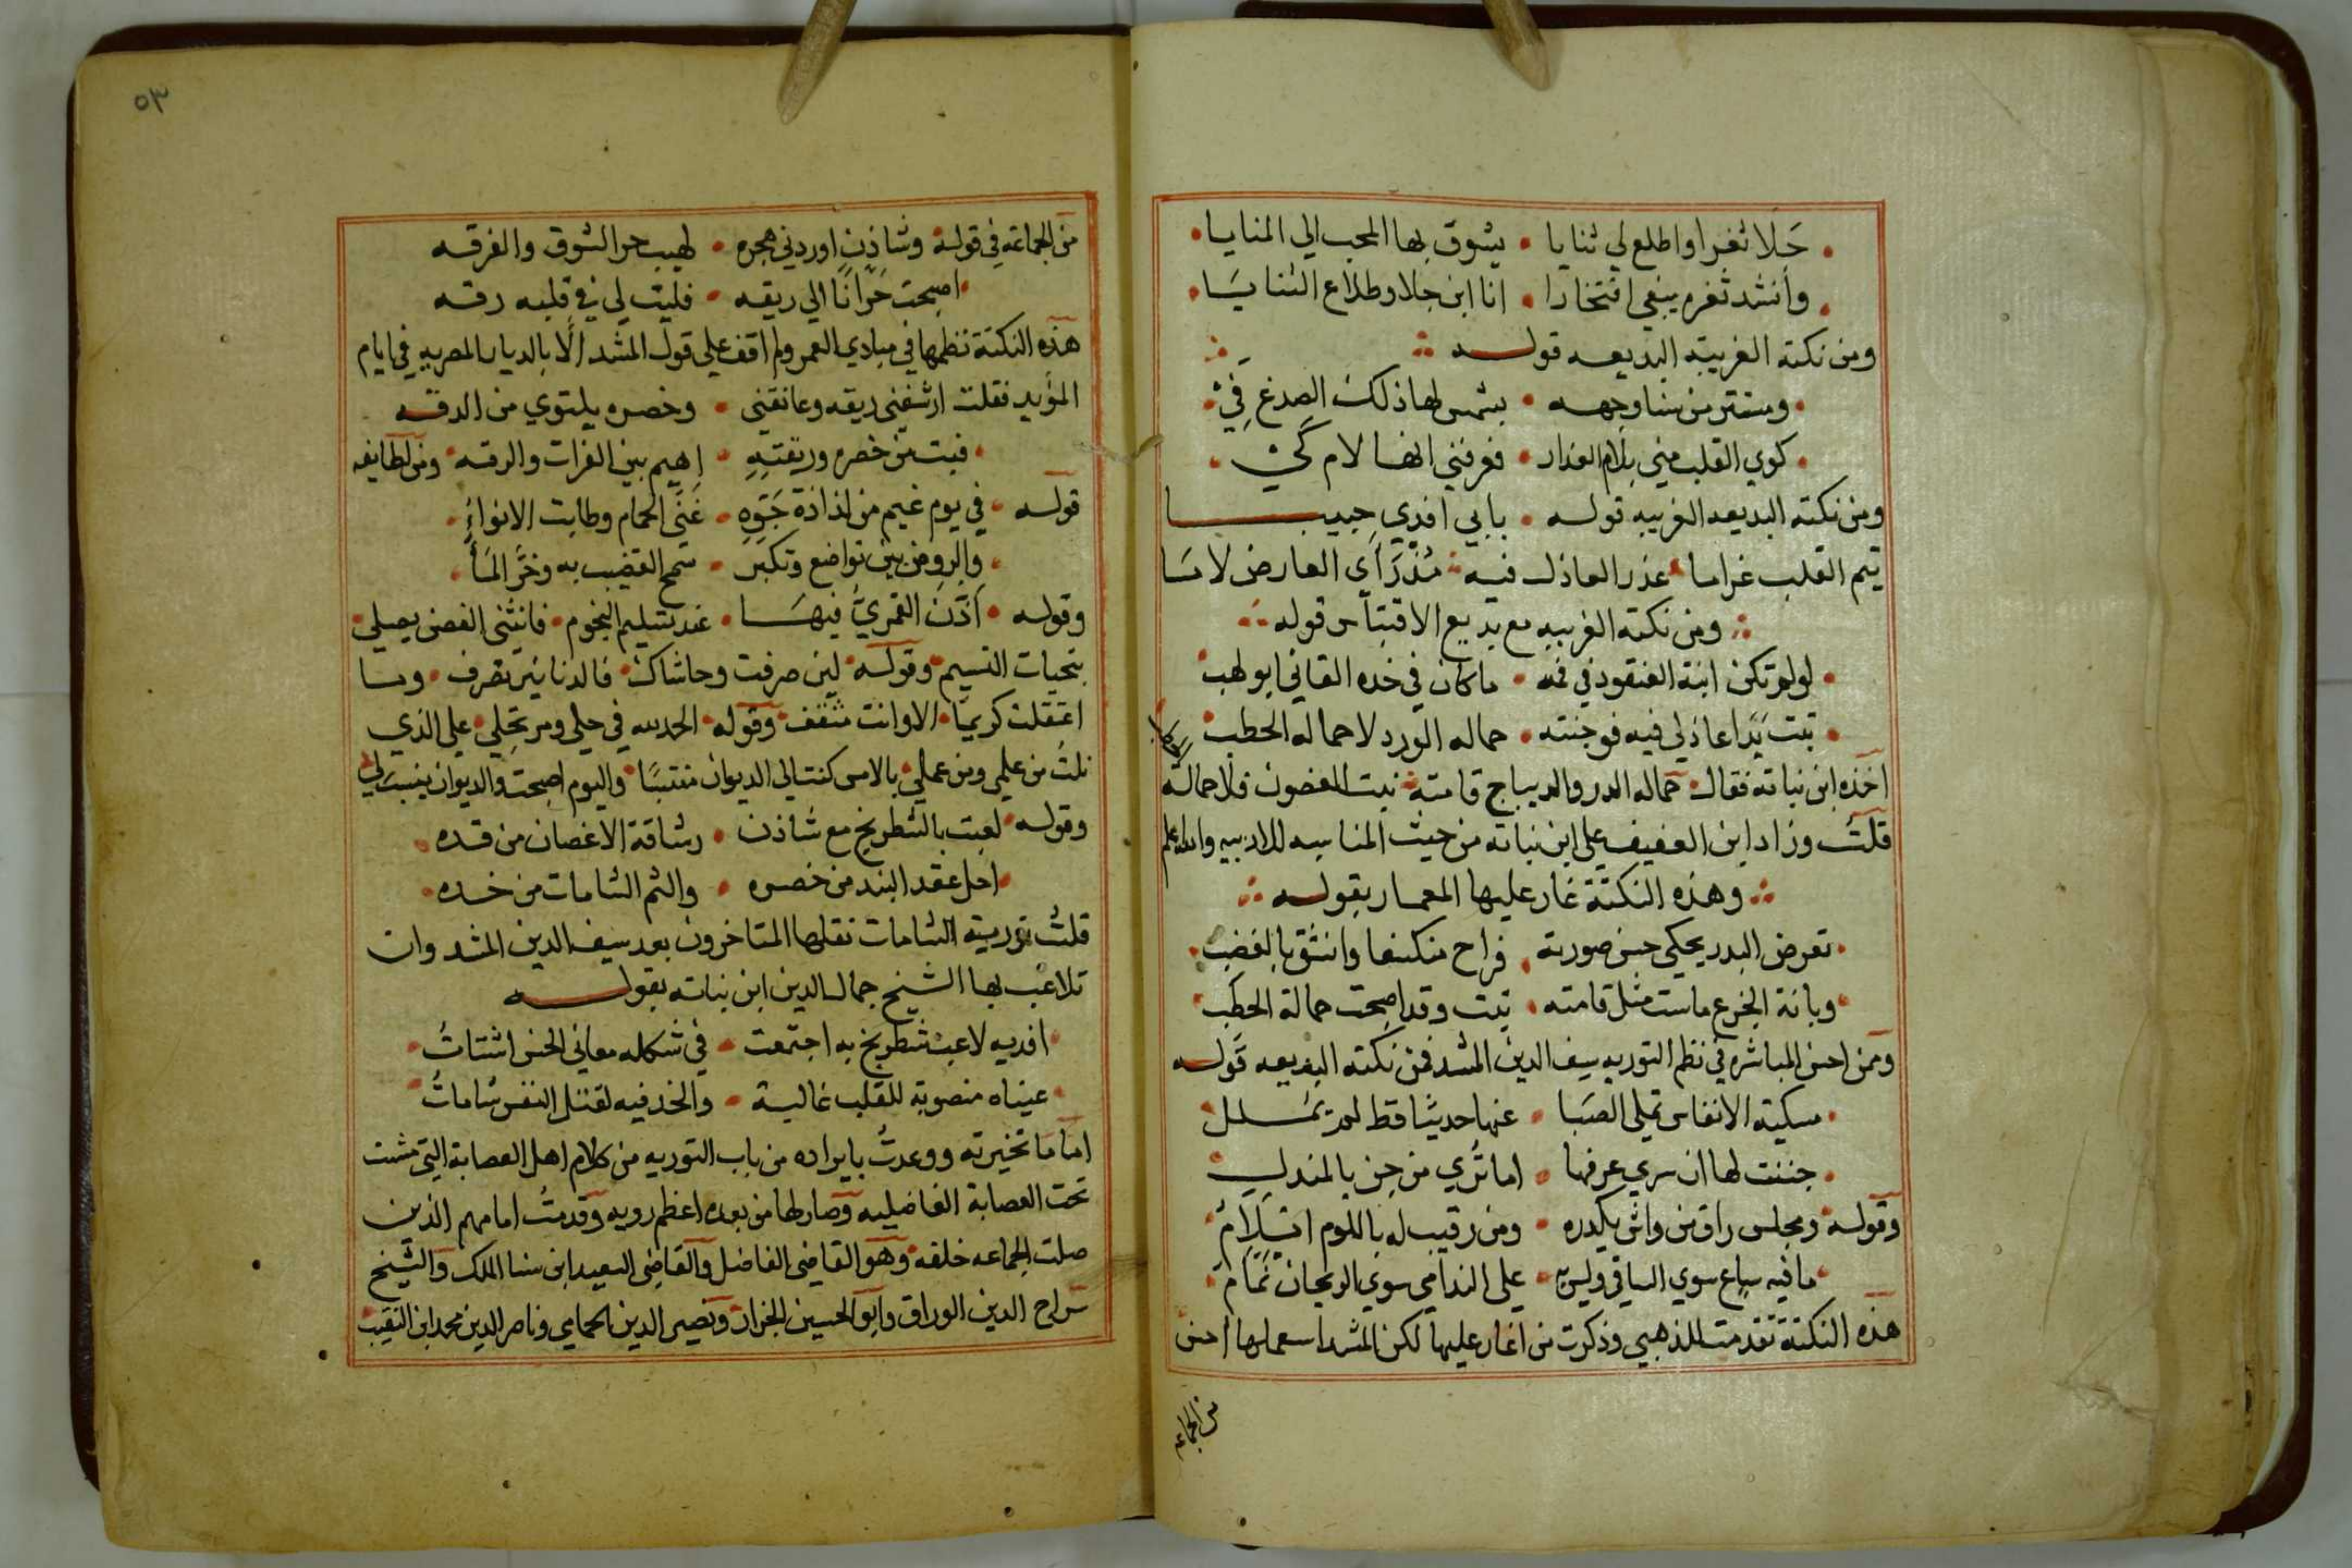 حَلا ثغرا واطلع لي ثنايا • يشوق بها المحب الي المنايا
وانشد ثغره يبغي افتخارا • انا ابن جلا وطلاع الثنايا
ومن نكته الغريبة البديعه قوله
ومستتر من سنا وجهه • بشمس لها ذلك الصدغ فَيْ
كوي القلب مني بلام العذار • فعرفني انها لام كَيْ
ومن نكته البديعه الغريبه قوله • بابي افدي حبيبا
يتم القلب غراما • عذر العاذل فيه • مُذ رَاي العارض لاما
ومن نكته الغريبه مع بديع الاقتباس قوله
لو لم تكن ابنة العنقود في فمه • ما كان في خده القاني ابو لهب
تبت يَدا عاذلي فيه فوجنته • حماله الورد لا حماله الحطب
اخذه ابن نباته فقال • حماله الدر والديباج قامته • تبت الغصون فلا حماله
الحطب
قلتُ وزاد ابن العفيف علي ابن نباته من حيث المناسبه الادبيه والله اعلم
وهذه النكتة غار عليها المعمار بقوله
تعرض البدر يحكي حسن صورته • فراح منكسفا وانشق بالغضب
وبانة الجزع ماست مثل قامته • تبت وقد اصبحت حمالة الحطب
وممن احسن المباشره في نظم التوريه سيف الدين المشد فمن نكته البديعه قوله
مسكية الانفاس تملي الصَبا • عنها حديثا قط لم يملل
جننت لها ان سري عرفها • اما تري من جن بالمندل
وقوله • ومجلس راق من واش يكدره • ومن رقيب له باللوم ايلامُ
ما فيه ساع سوي الساقي وليس به • علي الندامي سوي الريحان نمّامُ
هذه النكتة تقدمت للذهبي وذكرت من اغار عليها لكن المشد استعملها احسن
من الجماعه
٥٣
من الجماعه في قوله • وشاذن اوردني هجره • لهيب حر الشوق والفرقه
اصبحت حَرّانًا الي ريقه • فليت لي في قلبه رقه
هذه النكتة نظمها في مبادي العمر ولم اقف علي قول المشد الا بالديار المصريه في ايام
المؤيد فقلت ارشفني ريقه وعانقني • وخصره يلتوي من الدقه
فبت من خصره وريقتِهِ • اهيم بين الفرات والرقه • ومن لطايفه
قوله • في يوم غيم من لذاذة جَوّهِ • غَنّي الحمام وطابت الانواءُ
والروض بين تواضع وتكبر • شمخ القضيب به وخَرّ المَاءُ
وقوله • اَذَّنَ القمريُّ فيها • عند تسليم النجوم • فانثني الغصن يصلي
بتحيات النسيم • وقوله • لين صرفت وحاشاك • فالدنانير تصرف • وما
اعتقلت كريمًا • الا وانت مثقف • وقوله • الحمد لله في حلي ومرتحلي • علي الذي
نلتُ من علمي ومن عملي • بالامس كنت الي الديوان منتسبًا • واليوم اصبحت والديوان ينسب لي
وقوله • لعبت بالشطرنج مع شاذن • رشاقة الاغصان من قده
احل عقد البند من خصره • والثم الشامات من خده
قلتُ تورية الشامات نقلها المتاخرون بعد سيف الدين المشد وان
تلاعب بها الشيخ جمال الدين ابن نباته بقوله
افديه لاعب شطرنج به اجتمعت • في شكله معاني الحسن اشتاتُ
عيناه منصوبة للقلب غالبة • والخد فيه لقتل النفس شاماتُ
اما ما تخيرته ووعدتُ بايراده من باب التوريه من كلام اهل العصابة التي مشت
تحت العصابة الفاضليه وصار لها من بعده اعظم رويه وقدمتُ امامهم الذين
صلت الجماعه خلفه • وهو القاضي الفاضل والقاضي السعيد ابن سنا الملك والشيخ
سراج الدين الوراق وابو الحسين الجزار ونصير الدين الحمامي وناصر الدين محمد ابن النقيب